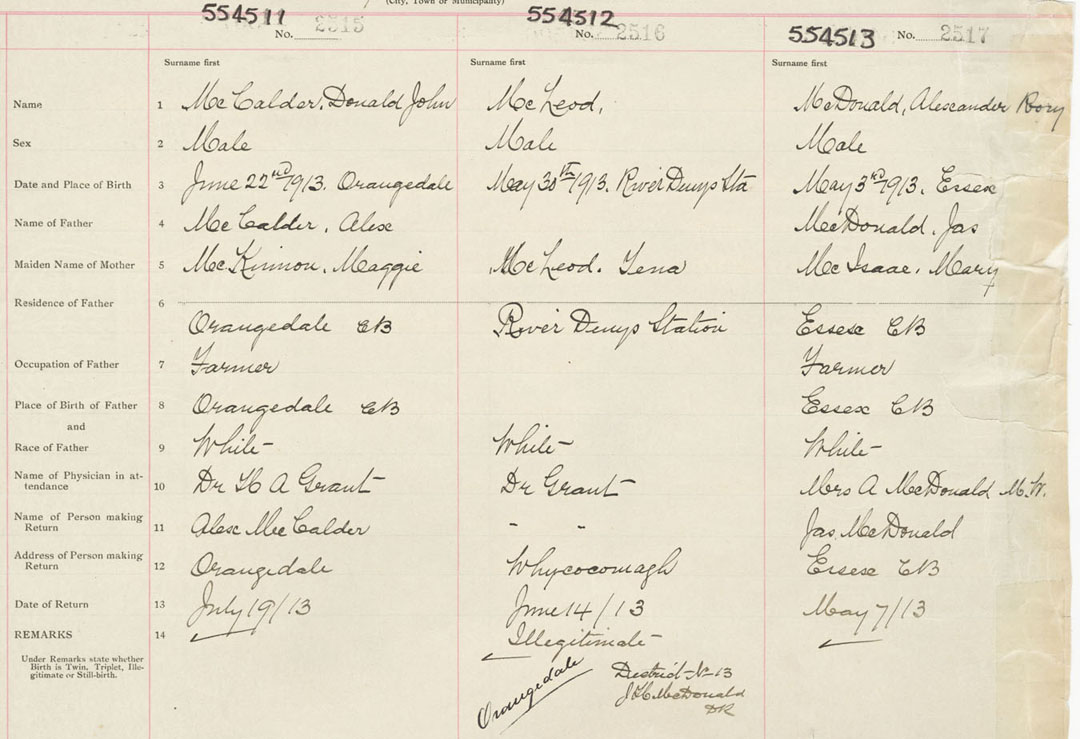 (City, Town or Municipality)
554511 No. 2515 554512 No. 2516 554513 No. 2517
Surname first Surname first Surname first
Name 1 McCalder, Donald John McLeod, McDonald, Alexander Rory
Sex 2 Male Male Male
Date and Place of Birth 3 June 22nd 1913. Orangedale May 30th 1913. River Denys Sta May 3rd 1913. Essex
Name of Father 4 McCalder, Alex McDonald, Jas
Maiden Name of Mother 5 McKinnon, Maggie McLeod. Tena McIsaac, Mary
Residence of Father 6
Orangedale CB River Denys Station Essex CB
Occupation of Father 7 Farmer Farmer
Place of Birth of Father 8 Orangedale CB Essex CB
and
Race of Father 9 White White White
Name of Physician in at-
tendance 10 Dr H A Grant Dr Grant Mrs A McDonald M.W.
Name of Person making
Return 11 Alex McCalder " " Jas. McDonald
Address of Person making
Return 12 Orangedale Whycocomagh Essex CB
Date of Return 13 July 19/13 June 14/13 May 7/13
REMARKS 14 Illegitimate
Under Remarks state whether
Birth is Twin, Triplet, Ille-
gitimate or Still-birth.
Orangedale
District No 13
J H McDonald
DR